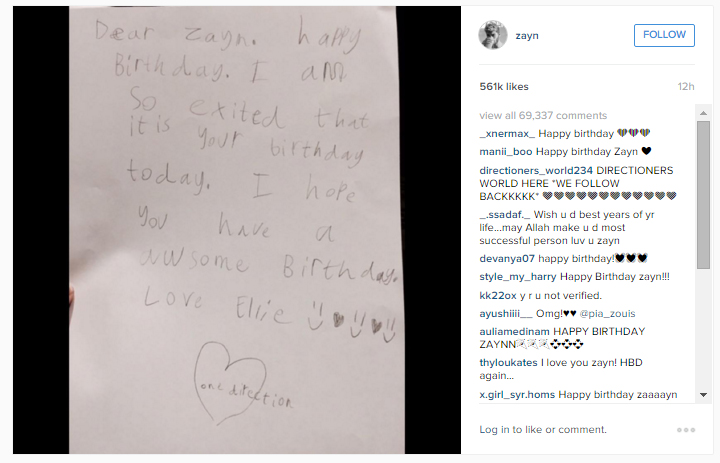 Dear zayn. happy
Birthday. I am
so exited that
it is your birthday
today. I hope
you have a
awsome Birthday.
Love Ellie
one direction
zayn
FOLLOW
561k likes
12h
view all 69,337 comments
_xnermax_ Happy birthday 
manii_boo Happy birthday Zayn
directioners_world234 DIRECTIONERS
WORLD HERE *WE FOLLOW
BACKKKKK*
_.ssadaf._ Wish u d best years of yr
life...may Allah make u d most
successful person luv u zayn
devanya07 happy birthday!
style_my_harry Happy Birthday zayn!!!
kk22ox y r u not verified.
ayushiiii__ Omg!♥♥ @pia_zouis
auliamedinam HAPPY BIRTHDAY
ZAYNN
thyloukates I love you zayn! HBD
again...
x.girl_syr.homs Happy birthday zaaaayn
Log in to like or comment.